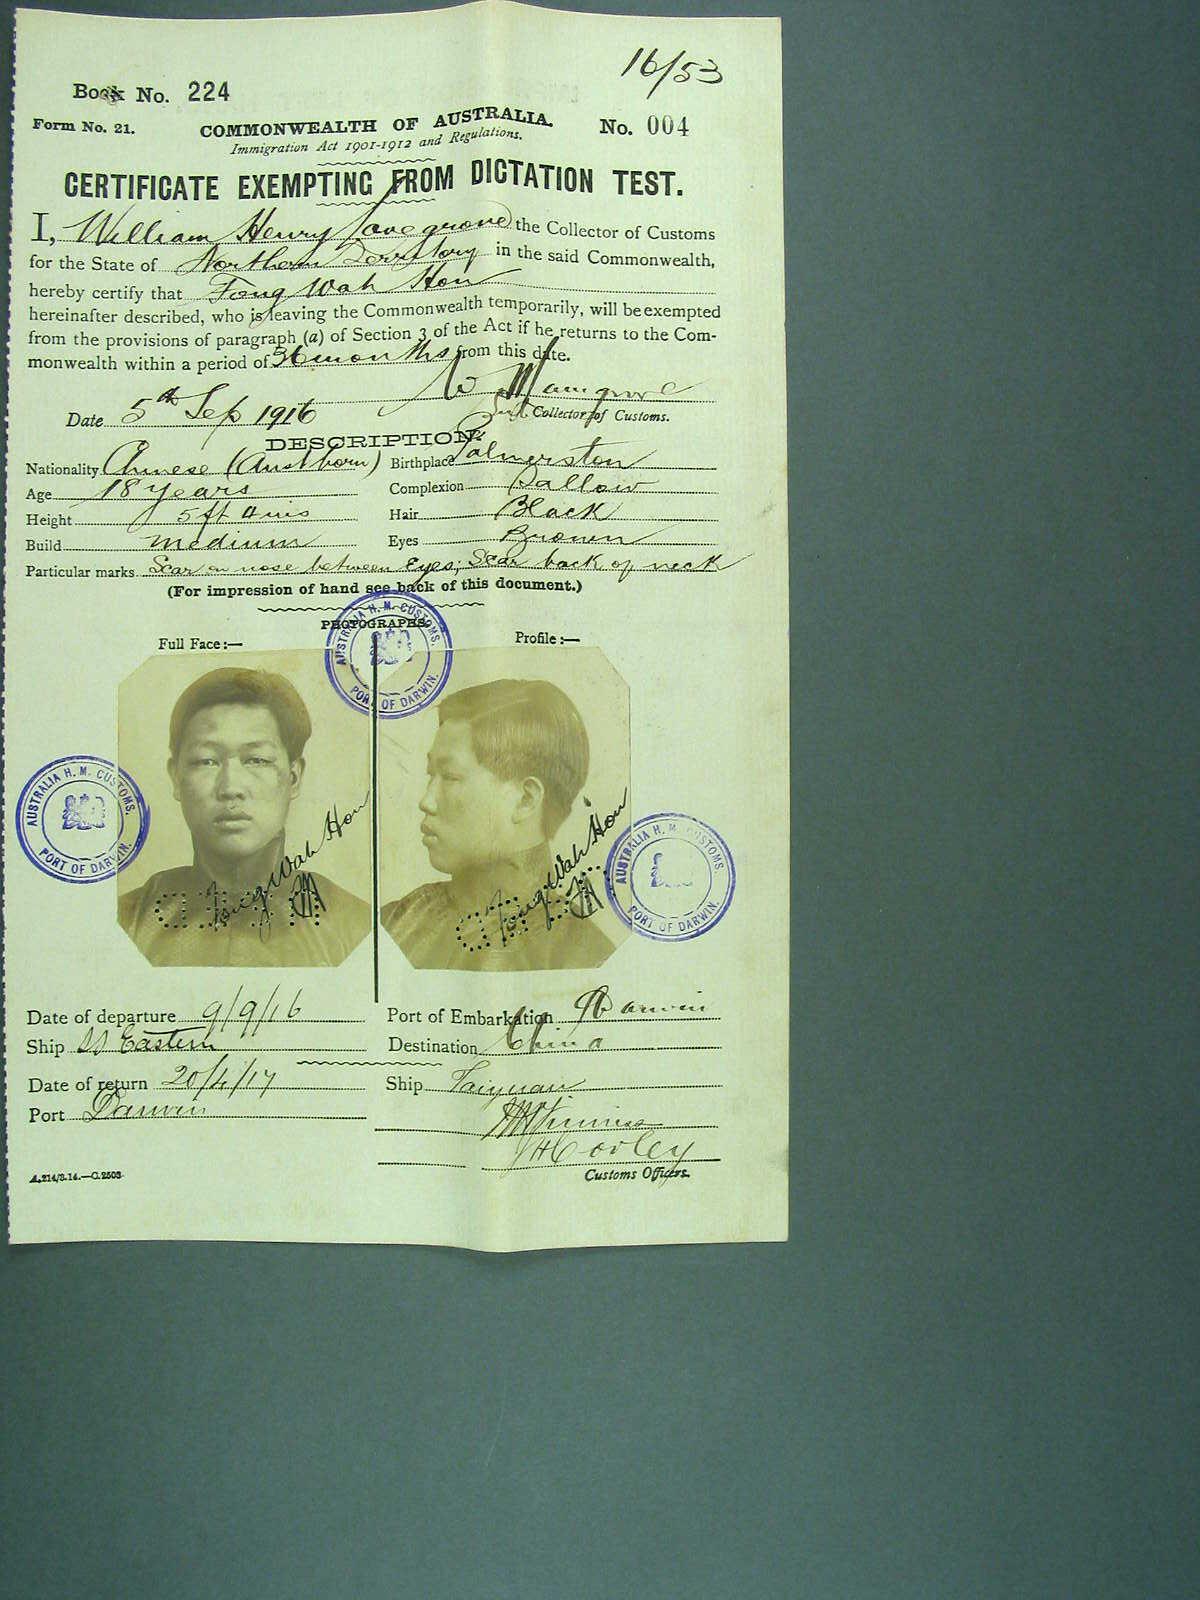 16/53
Book No. 224
Form No. 21.
COMMONWEALTH OF AUSTRALIA.
No. 004
Immigration Act 1901-1912 and Regulations.
CERTIFICATE EXEMPTING FROM DICTATION TEST.
I, William Henry Lovegrove the Collector of Customs
for the State of Northern Territory in the said Commonwealth,
hereby certify that Fong Wah Hon
hereinafter described, who is leaving the Commonwealth temporarily, will be exempted
from the provisions of paragraph (a) of Section 3 of the Act if he returns to the Com-
monwealth within a period of 36 months from this date.
W Lovegrove
Date 5th Sep 1916
Collector of Customs.
DESCRIPTION.
Nationality Chinese (Aust born) Birthplace Palmerston
Age 18 years Complexion Sallow
Height 5 ft 4 ins Hair Black
Build medium Eyes Brown
Particular marks Scar on nose between Eyes; Scar back of neck
(For impression of hand see back of this document.)
PHOTOGRAPHS.
Full Face:— Profile:—
AUSTRALIA H. M. CUSTOMS. PORT OF DARWIN.
AUSTRALIA H. M. CUSTOMS. PORT OF DARWIN.
AUSTRALIA H. M. CUSTOMS. PORT OF DARWIN.
Fong Wah Hon
Fong Wah Hon
Date of departure 9/9/16 Port of Embarkation Darwin
Ship SS Eastern Destination China
Date of return 20/4/17 Ship Taiyuan
Port Darwin
Customs Officers.
A.214/3.14.—C.2503